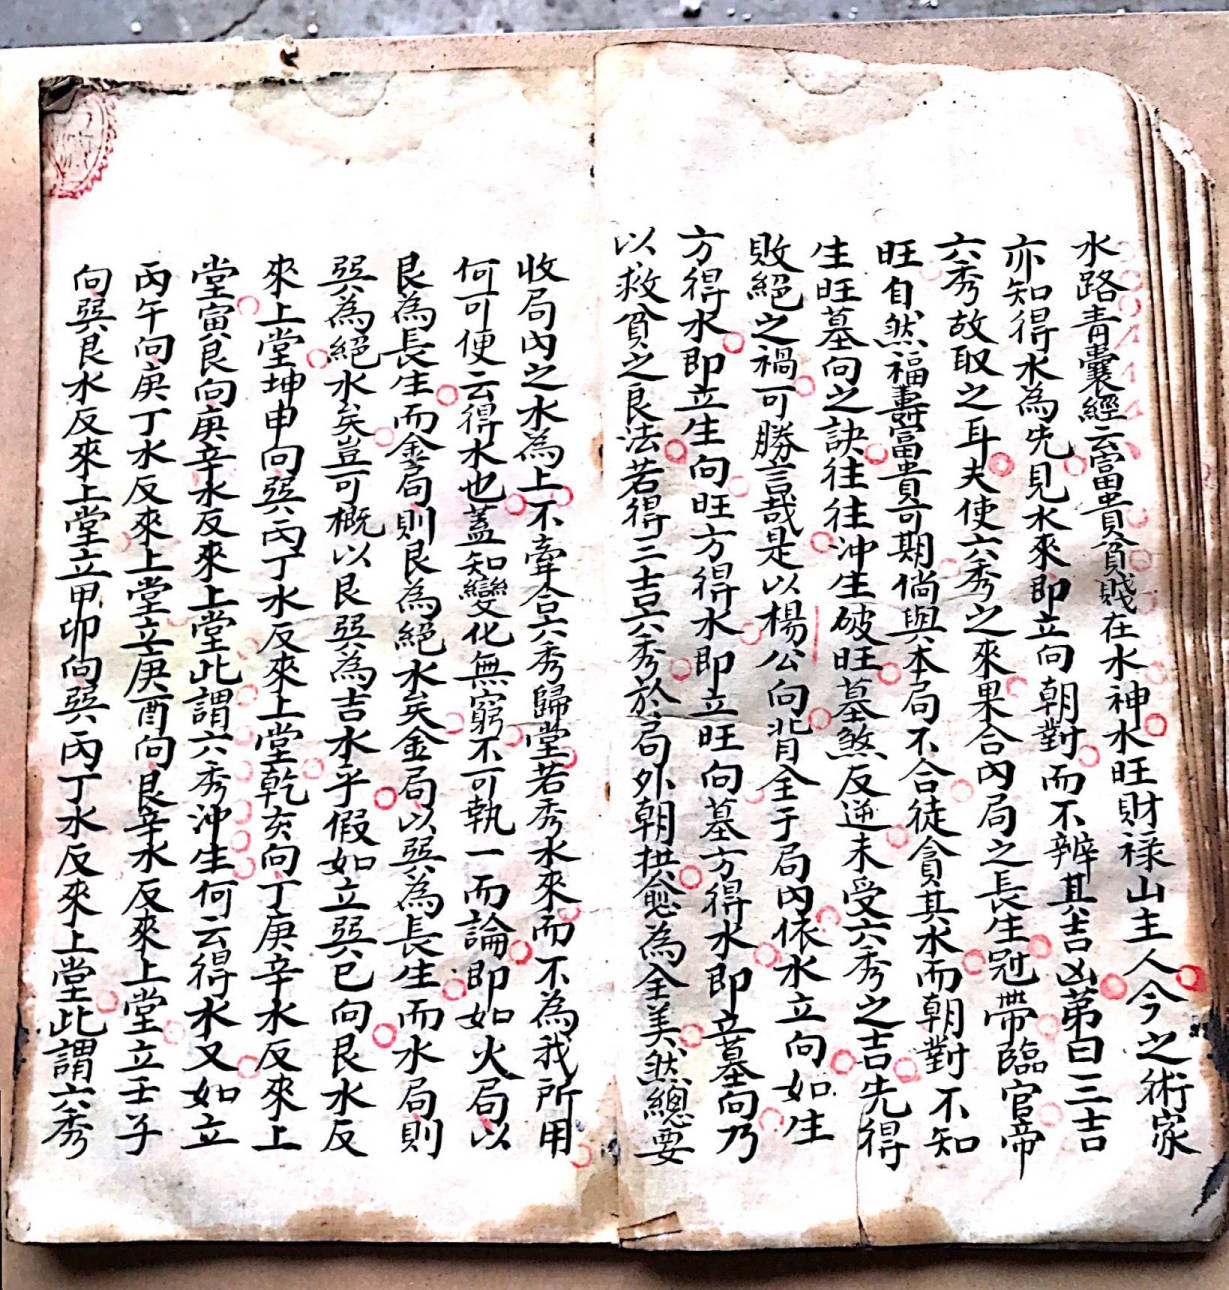 水路青囊經云富貴貧賤在水神水旺財祿山主人今之術家
亦知得水為先見水來即立向朝對而不辨其吉凶第曰三吉
六秀故取之耳夫使六秀之來果合內局之長生冠帶臨官帝
旺自然福壽富貴可期倘與本局不合徒貪其水而朝對不知
生旺墓向之訣往往沖生破旺墓煞反逆未受六秀之吉先得
敗絕之禍可勝言哉是以楊公向背全于局內依水立向如生
方得水即立生向旺方得水即立旺向墓方得水即立墓向乃
以救貧之良法若得三吉六秀於局外朝拱愈為全美然總要
收局內之水為上不牽合六秀歸堂若秀水來而不為我所用
何可便云得水也蓋知變化無窮不可執一而論即如火局以
艮為長生而金局則艮為絕水矣金局以巽為長生而水局則
巽為絕水矣豈可概以艮巽為吉水乎假如立巽巳向艮水反
來上堂坤申向巽丙丁水反來上堂乾亥向丁庚辛水反來上
堂寅艮向庚辛水反來上堂此謂六秀沖生何云得水又如立
丙午向庚丁水反來上堂立庚酉向艮辛水反來上堂立壬子
向巽艮水反來上堂立甲卯向巽丙丁水反來上堂此謂六秀